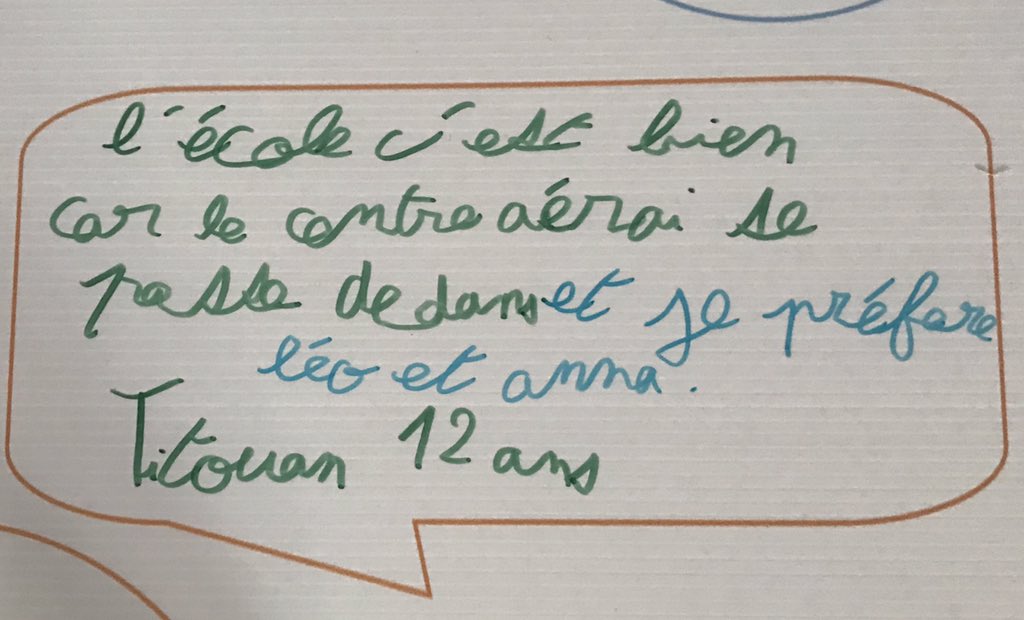 l'école c'est bien
car le contre aérai se
passe dedans et je préfere
léo et anna.
Titouan 12 ans